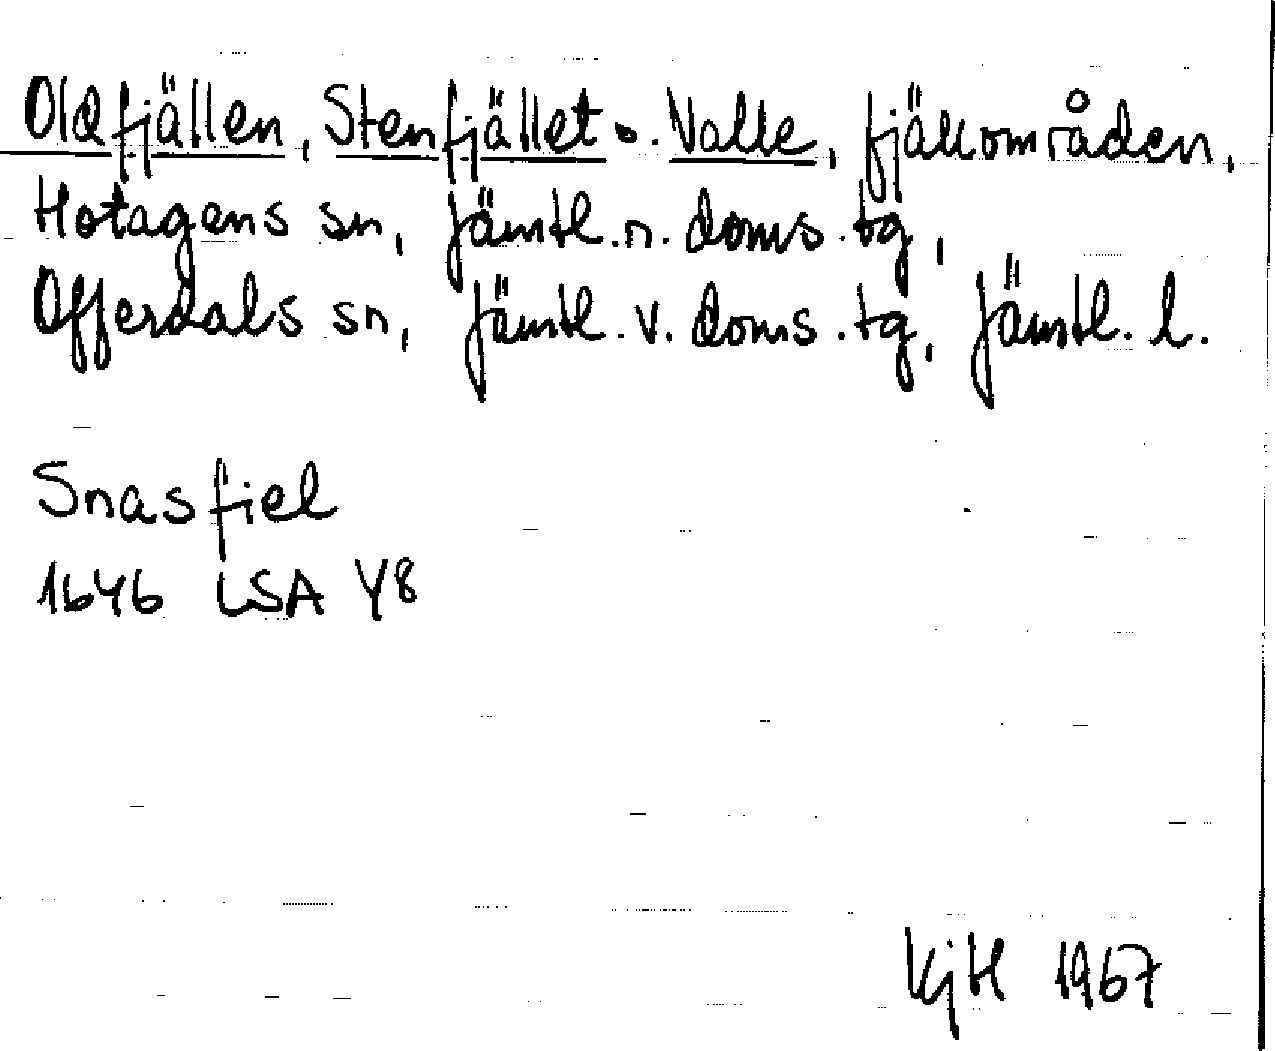 Oldfjällen, Stenfjället o. Valle, fjällområden,
Hotagens sn, Jämtl. n. doms. tg,
Offerdals sn, Jämtl. v. doms. tg, Jämtl. l.
Snasfiel
1646 LSA Y8
VjH 1967